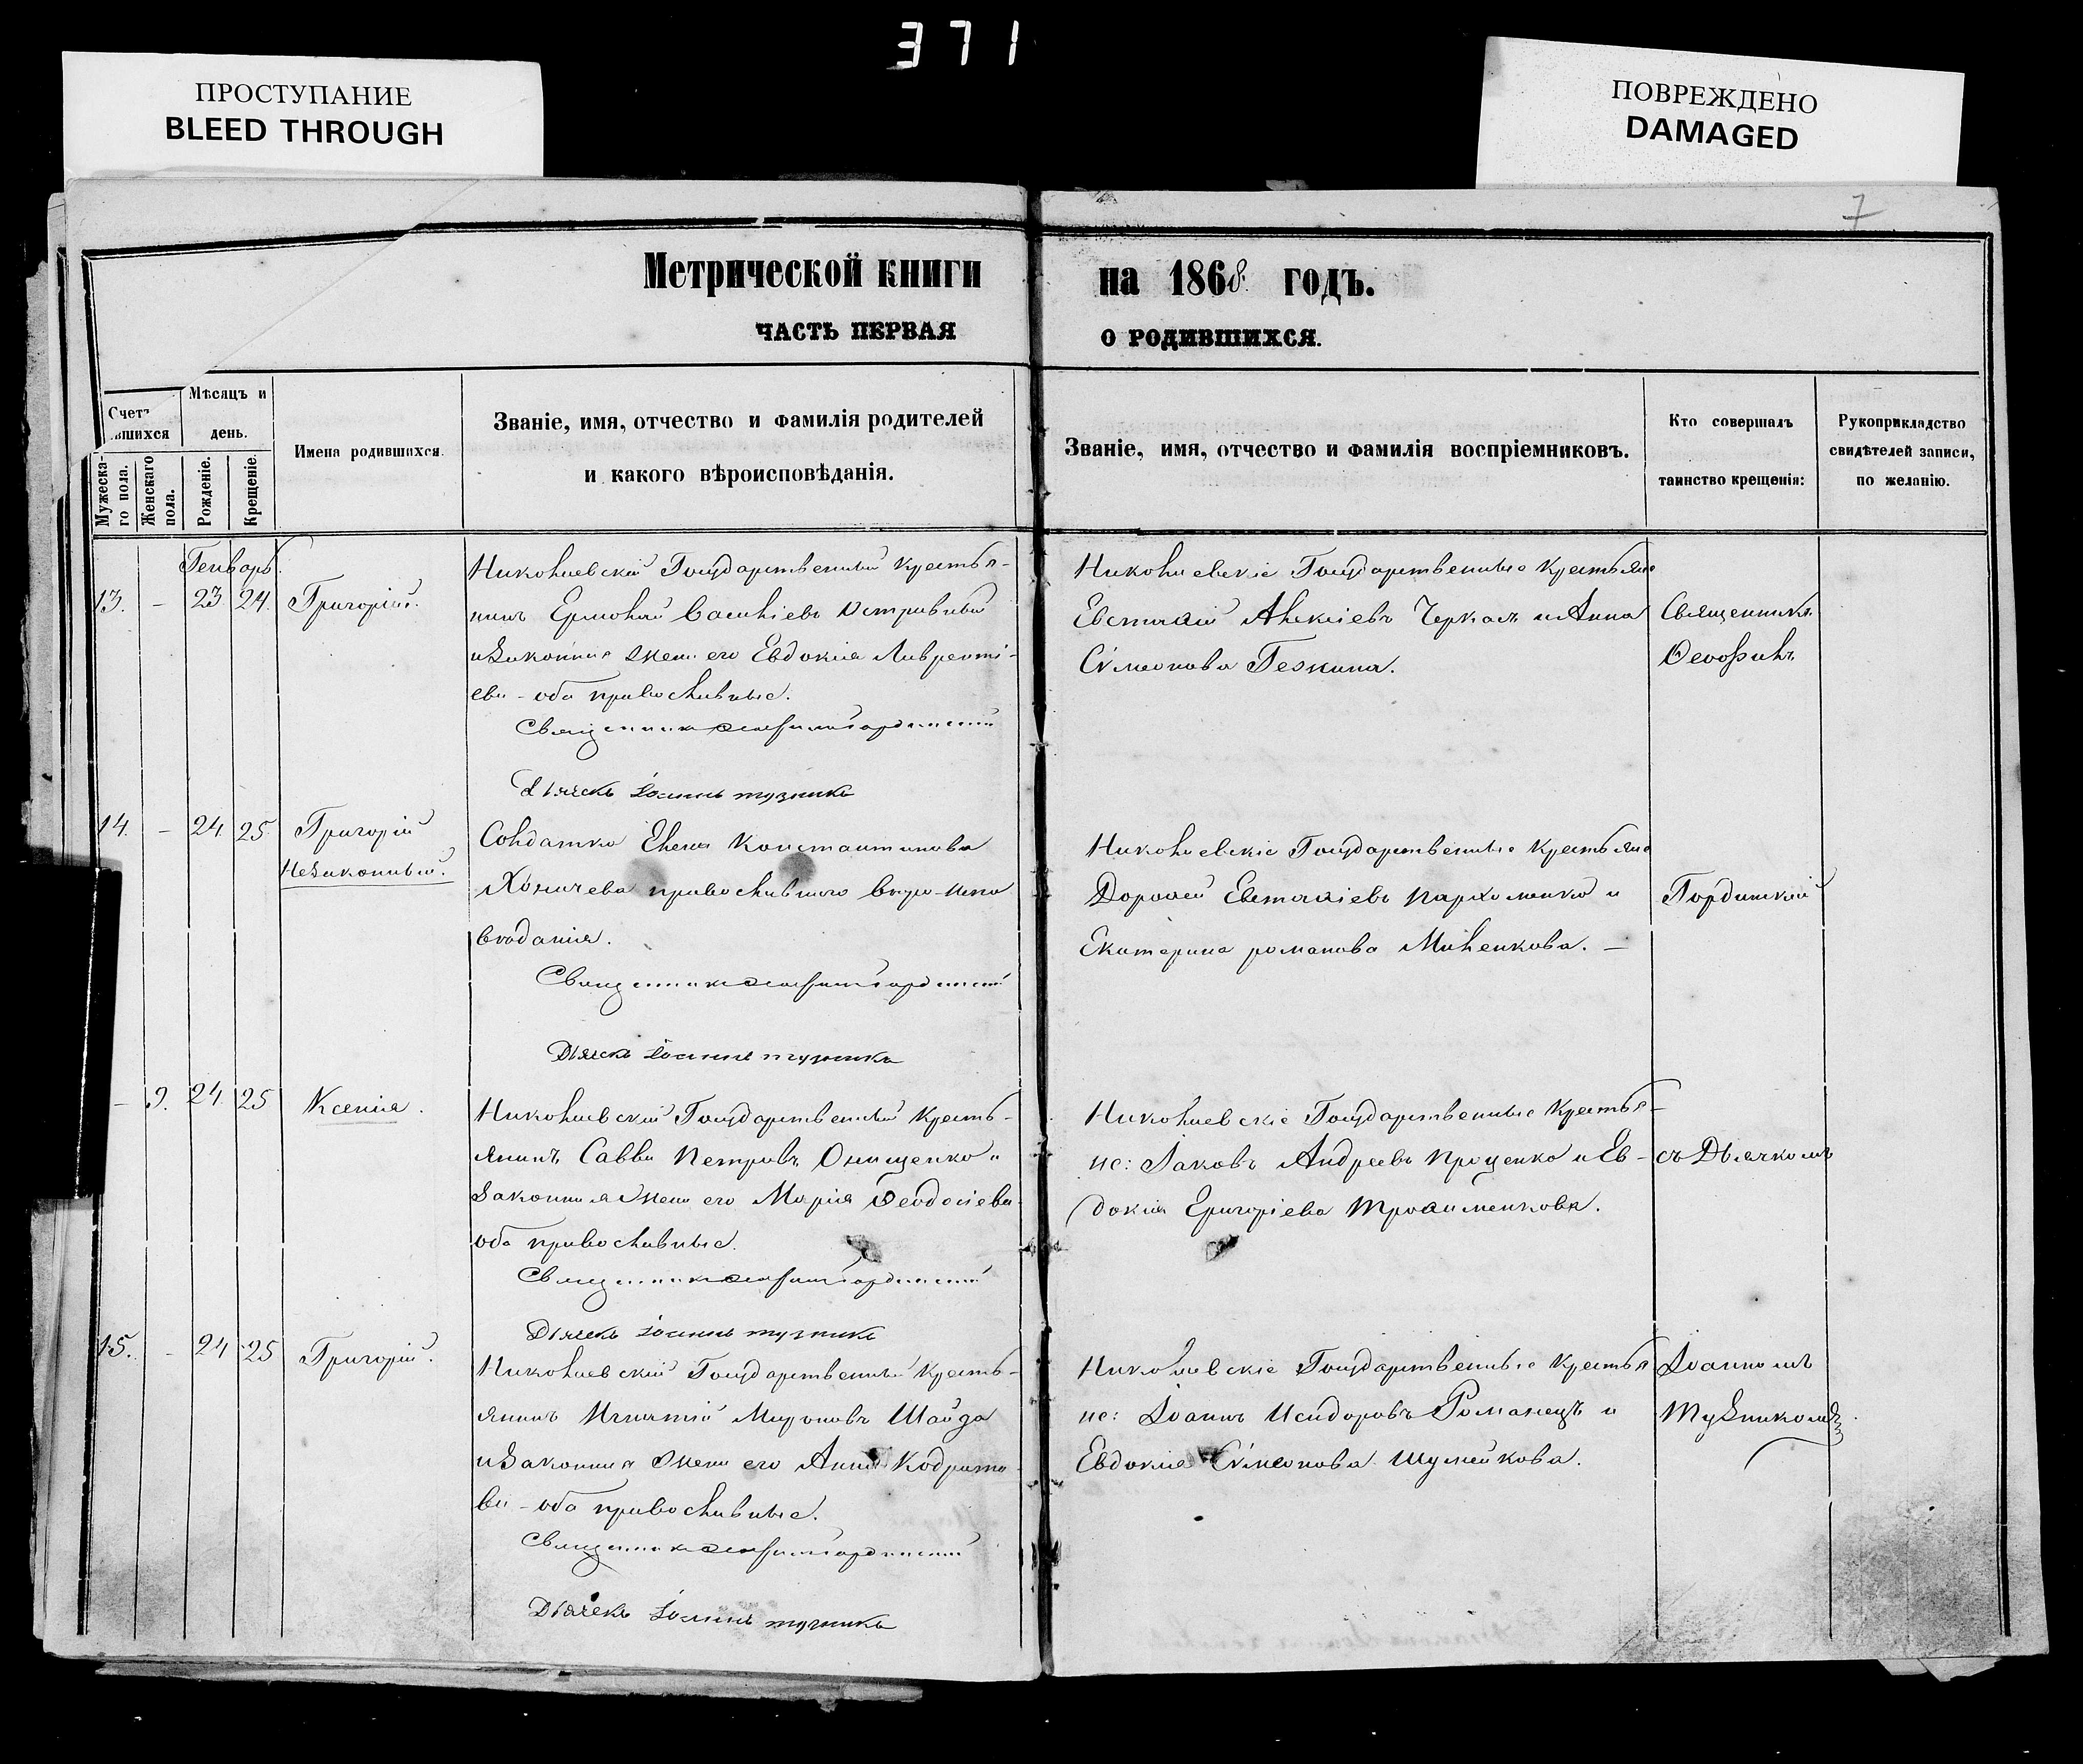 371
ПРОСТУПАНИЕ
BLEED THROUGH
ПОВРЕЖДЕНО
DAMAGED
7
Метрической книги
на 1868. годъ.
ЧАСТЬ ПЕРВАЯ
О РОДИВШИХСЯ.
Счетъ
вшихся
Мужеска-
го пола.
Женскаго
пола.
Мѣсяцъ и
день.
Рожденіе.
Крещеніе.
Имена родившихся.
Званіе, имя, отчество и фамилія родителей
и какого вѣроисповѣданія.
Званіе, имя, отчество и фамилія воспріемниковъ.
Кто совершалъ
таинство крещенія:
Рукоприкладство
свидѣтелей записи,
по желанію.
Генварь.
13. - 23 24. Григорій.
Николаевскій Государственный Крестья-
нинъ Ермолай Василіевъ Остривный
и законная жена его Евдокія Лаврентіі-
ева - оба православные.
Священникъ Ѳеофилъ Гординскій
Дьячекъ Іоаннъ Тузникъ
Николаевскіе Государственные Крестьяне
Евстаѳій Алексіевъ Черкасъ и Анна
Сѵмеонова Гезкина.
Священникъ
Ѳеофилъ
14. - 24. 25. Григорій
Незаконный.
Солдатка Елена Константинова
Хоничева православного вѣро-испо
вѣданія.
Священникъ Ѳеофилъ Гординскій
Дьячекъ Іоаннъ Тузникъ
Николаевскіе Государственные Крестьяне
Дороѳей Евстаѳіевъ Пархоменко и
Екатерина романова Миленкова. -
Гординскій
- 9. 24. 25 Ксенія.
Николаевскій Государственный Кресть-
янинъ Савва Петровъ Онищенко и
Законная жена его Марія Ѳеодосіева
оба православные.
Священникъ Ѳеофилъ Гординскій
Дьячекъ Іоаннъ Тузникъ
Николаевскіе Государственные Крестья-
не: Іаковъ Андреевъ Проценко и Ев-
докія Григоріева Троѳименкова.
съ Дьячкомъ
15. - 24 25 Григорій.
Николаевскій Государственный Кресть-
янинъ Игнатій Мироновъ Шайда
и Законная жена его Анна Кодрато
ва - оба православные.
Священникъ Ѳеофилъ Гординскій
Дьячекъ Іоаннъ Тузникъ
Николаевскіе Государственные Крестья
не: Іоаннъ Исидоровъ Романецъ и
Евдокія Сѵмеонова Шумейкова.
Іоанномъ
Тузникомъ